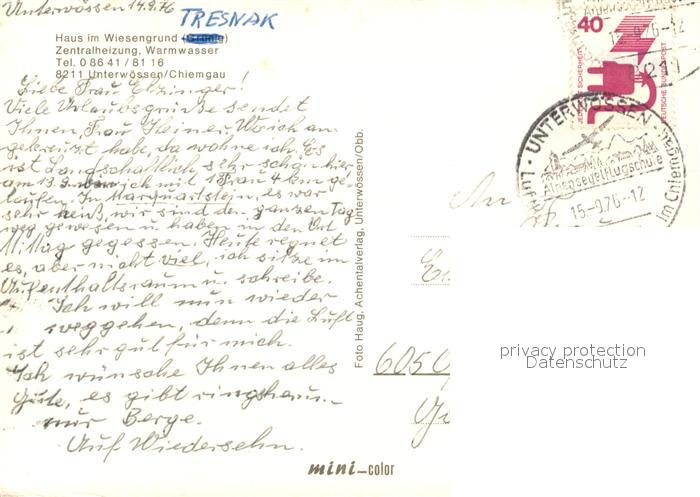 Unterwössen 14.9.76
TRESNAK
Haus im Wiesengrund
Zentralheizung, Warmwasser
Tel. 0 86 41 / 81 16
8211 Unterwössen/Chiemgau
Liebe Frau Etzinger!
Viele Urlaubsgrüße sendet
Ihnen, Frau Heiner. Wo ich an
gekreuzt habe, da wohne ich. Es
ist Landschaftlich sehr schön hier
am 13.9. war ich mit 1 Frau 4 km ge
laufen. In Marquartstein, es war
sehr heiß, wir sind den ganzen Tag
weg gewesen u. haben in den Ort
Mittag gegessen. Heute regnet
es, aber nicht viel, ich sitze im
Aufenthaltsraum u. schreibe.
Ich will nun wieder
weggehen, denn die Luft
ist sehr gut für mich.
Ich wünsche Ihnen alles
Gute, es gibt ringsherum
nur Berge.
Auf Wiedersehn.
Foto Haug, Achentalverlag, Unterwössen/Obb.
mini-color
40
JEDERZEIT SICHERHEIT
DEUTSCHE BUNDESPOST
15.-9.76-12
8211
UNTERWÖSSEN
Alpensegelflugschule
im Chiemgau
15.-9.76-12
An
605
privacy protection
Datenschutz